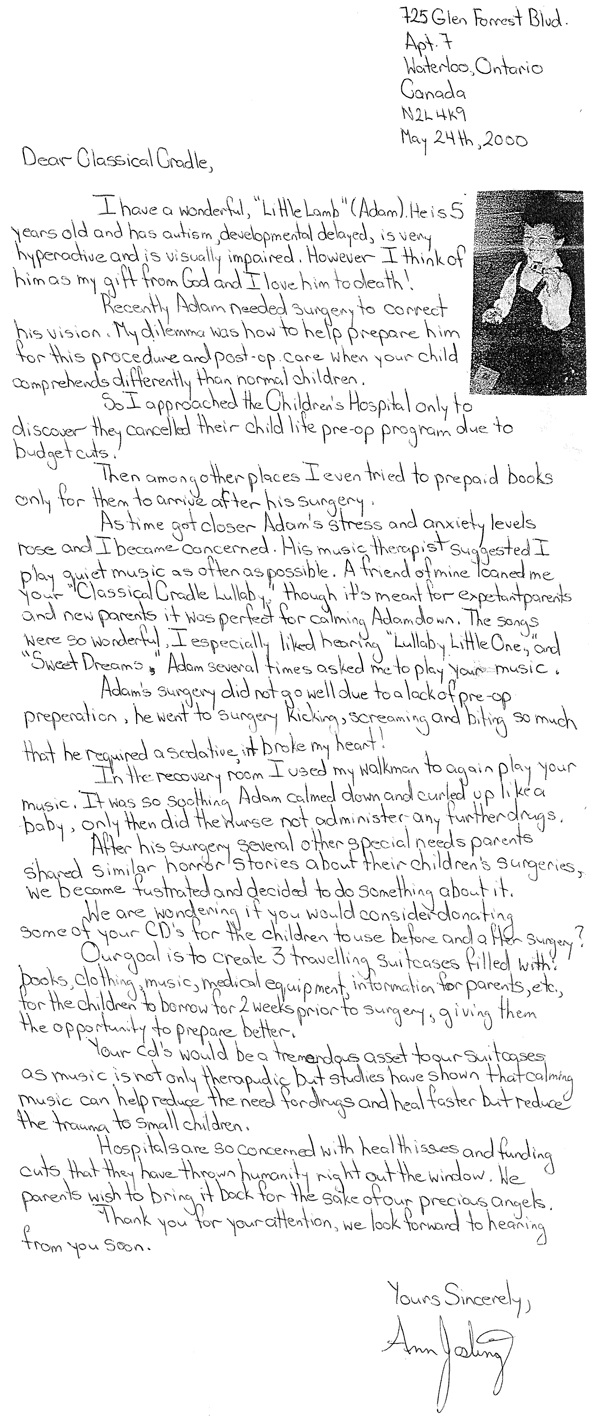 725 Glen Forrest Blvd.
Apt. 7
Waterloo, Ontario
Canada
N2L 4K9
May 24th, 2000
Dear Classical Cradle,
I have a wonderful, "Little Lamb" (Adam). He is 5
years old and has autism, developmental delayed, is very
hyperactive and is visually impaired. However I think of
him as my gift from God and I love him to death!
Recently Adam needed surgery to correct
his vision. My dilemma was how to help prepare him
for this procedure and post-op. care when your child
comprehends differently than normal children.
So I approached the Children's Hospital only to
discover they cancelled their child life pre-op program due to
budget cuts.
Then among other places I even tried to prepaid books
only for them to arrive after his surgery.
As time got closer Adam's stress and anxiety levels
rose and I became concerned. His music therapist suggested I
play quiet music as often as possible. A friend of mine loaned me
your "Classical Cradle Lullaby," though it's meant for expetant parents
and new parents it was perfect for calming Adam down. The songs
were so wonderful, I especially liked hearing "Lullaby Little One," and
"Sweet Dreams," Adam several times asked me to play your music.
Adam's surgery did not go well due to a lack of pre-op
preperation, he went to surgery kicking, screaming and biting so much
that he required a sedative, it broke my heart!
In the recovery room I used my walkman to again play your
music. It was so soothing Adam calmed down and curled up like a
baby, only then did the nurse not administer any further drugs.
After his surgery several other special needs parents
shared similar horror stories about their children's surgeries,
we became fustrated and decided to do something about it.
We are wondering if you would consider donating
some of your CD's for the children to use before and after surgery?
Our goal is to create 3 travelling suitcases filled with:
books, clothing, music, medical equipment, information for parents, etc.,
for the children to borrow for 2 weeks prior to surgery, giving them
the opportunity to prepare better.
Your cd's would be a tremendous asset to our suitcases
as music is not only therapudic but studies have shown that calming
music can help reduce the need for drugs and heal faster but reduce
the trauma to small children.
Hospitals are so concerned with health isses and funding
cuts that they have thrown humanity right out the window. We
parents wish to bring it back for the sake of our precious angels.
Thank you for your attention, we look forward to hearing
from you soon.
Yours Sincerely,
Ann Josling